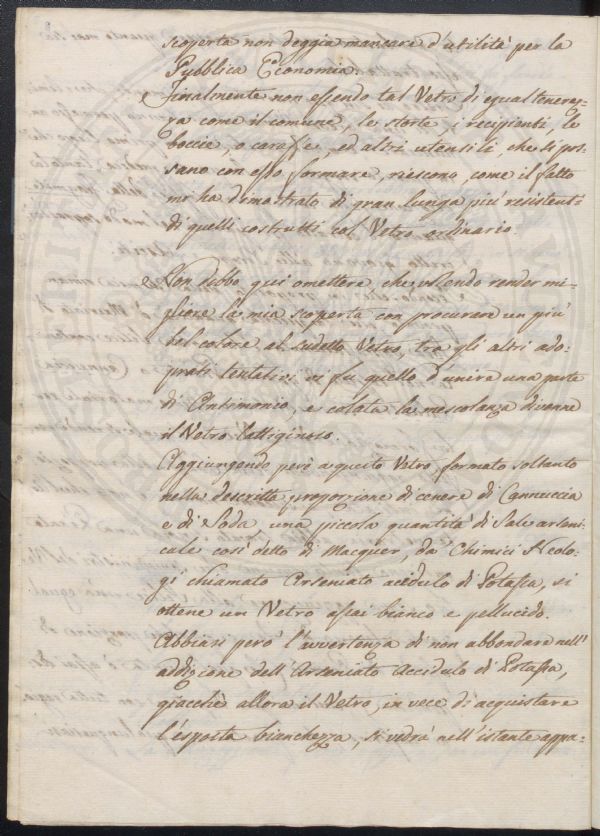 scoperta non deggia mancare d'utilità per la
Pubblica Economia.
Finalmente non essendo tal Vetro di egual tenerez=
za come il comune, le storte, i recipienti, le
boccie, o caraffe, ed altri utensili, che si pos=
sano con esso formare, riescono, come il fatto
mi ha dimostrato di gran lunga più resistenti
di quelli costrutti col Vetro ordinario.
Non debbo quì omettere, che volendo render mi=
gliore la mia scoperta con procurare un più
bel colore al sudetto Vetro, tra gli altri ado=
prati tentativi vi fu quello d'unire una parte
di Antimonio, e colata la mescolanza divenne
il Vetro lattiginoso.
Aggiungendo però a questo Vetro, formato soltanto
nella descritta proporzione di cenere di Cannuccia
e di Soda una piccola quantità di Sale arseni=
cale così detto di Macquer, da' Chimici Neolo=
gi chiamato Arseniato acidulo di Potassa, si
ottiene un Vetro assai bianco e pellucido.
Abbiasi però l'avvertenza di non abbondare nell'
addizione dell'Arseniato Acidulo di Potassa,
giacchè allora il Vetro, in vece di acquistare
l'esposta bianchezza, si vedrà nell'istante appa=